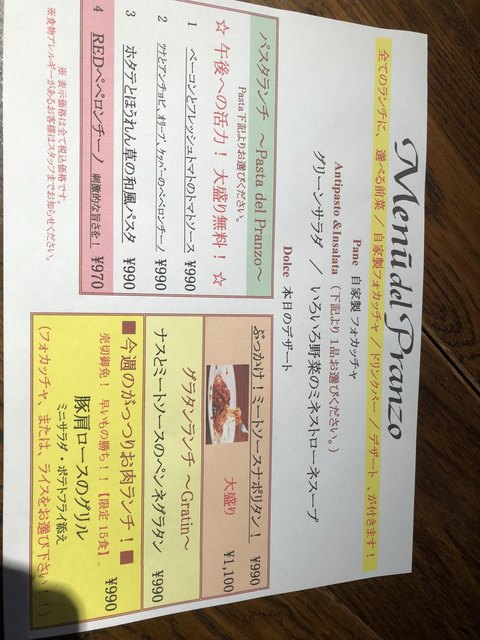 Menù del Pranzo
全てのランチに、選べる前菜／自家製フォカッチャ／ドリンクバー／デザート、が付きます！
Pane 自家製フォカッチャ
Antipasto &Insalata（下記より１品お選びください。）
グリーンサラダ ／ いろいろ野菜のミネストローネスープ
Dolce 本日のデザート
パスタランチ ～Pasta del Pranzo～
Pasta 下記よりお選びください。
☆ 午後への活力！ 大盛り無料！ ☆
1 ベーコンとフレッシュトマトのトマトソース ¥990
2 ツナとアンチョビ、オリーブ、ケッパーのペペロンチーノ ¥990
3 ホタテとほうれん草の和風パスタ ¥990
4 REDペペロンチーノ 刺激的な旨さを！ ¥970
※ 表示価格は全て税込価格です。
※食物アレルギーがあるお客様はスタッフまでお知らせください。
ぶっかけ！ミートソースナポリタン！ ¥990
大盛り ¥1,100
グラタンランチ ～Gratin～
ナスとミートソースのペンネグラタン ¥990
■ 今週のがっつりお肉ランチ！ ■
売切御免！ 早いもの勝ち！！【限定15食】
豚肩ロースのグリル ¥990
ミニサラダ・ポテトフライ添え
（フォカッチャ、または、ライスをお選び下さい！！）